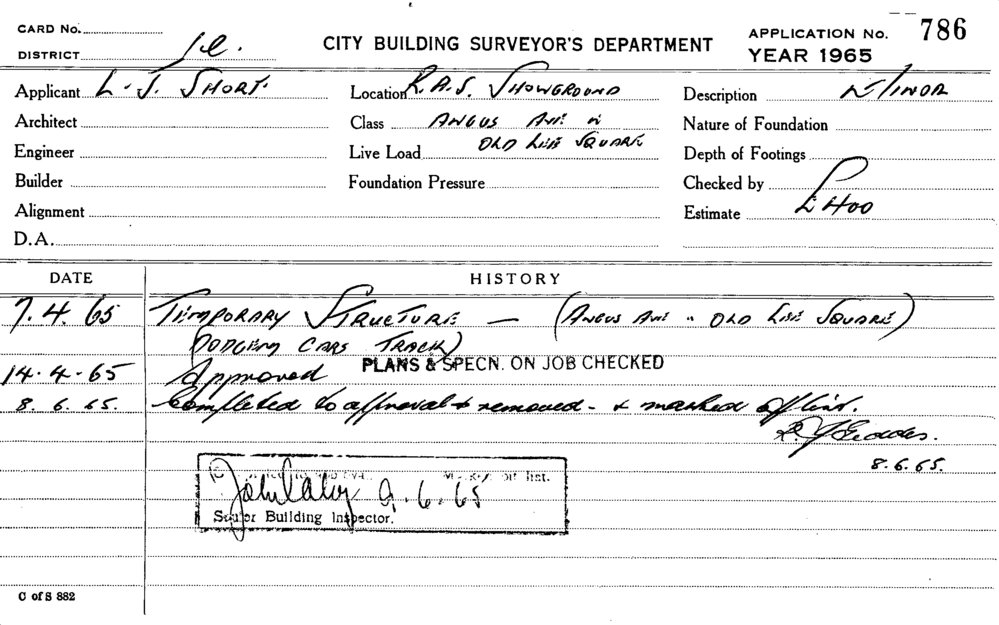 CARD No.
DISTRICT
CITY BUILDING SURVEYOR'S DEPARTMENT
APPLICATION No. 786
YEAR 1965
Applicant L. J. SHORT.
Location R.A.S. SHOWGROUND
Description MINOR
Architect
Class ANGUS AVE
Nature of Foundation
Engineer
Live Load OLD LINE SQUARE
Depth of Footings
Builder
Foundation Pressure
Checked by
Alignment
Estimate £400
D.A.
DATE HISTORY
7.4.65 TEMPORARY STRUCTURE — (ANGUS AVE " OLD LINE SQUARE)
(DODGEM CARS TRACK)
PLANS & SPECN. ON JOB CHECKED
14.4.65 Approved
8.6.65. Completed to approval & removed - & marked off list.
R. J. Geddes.
8.6.65.
off list.
9.6.65
Senior Building Inspector.
C of S 882